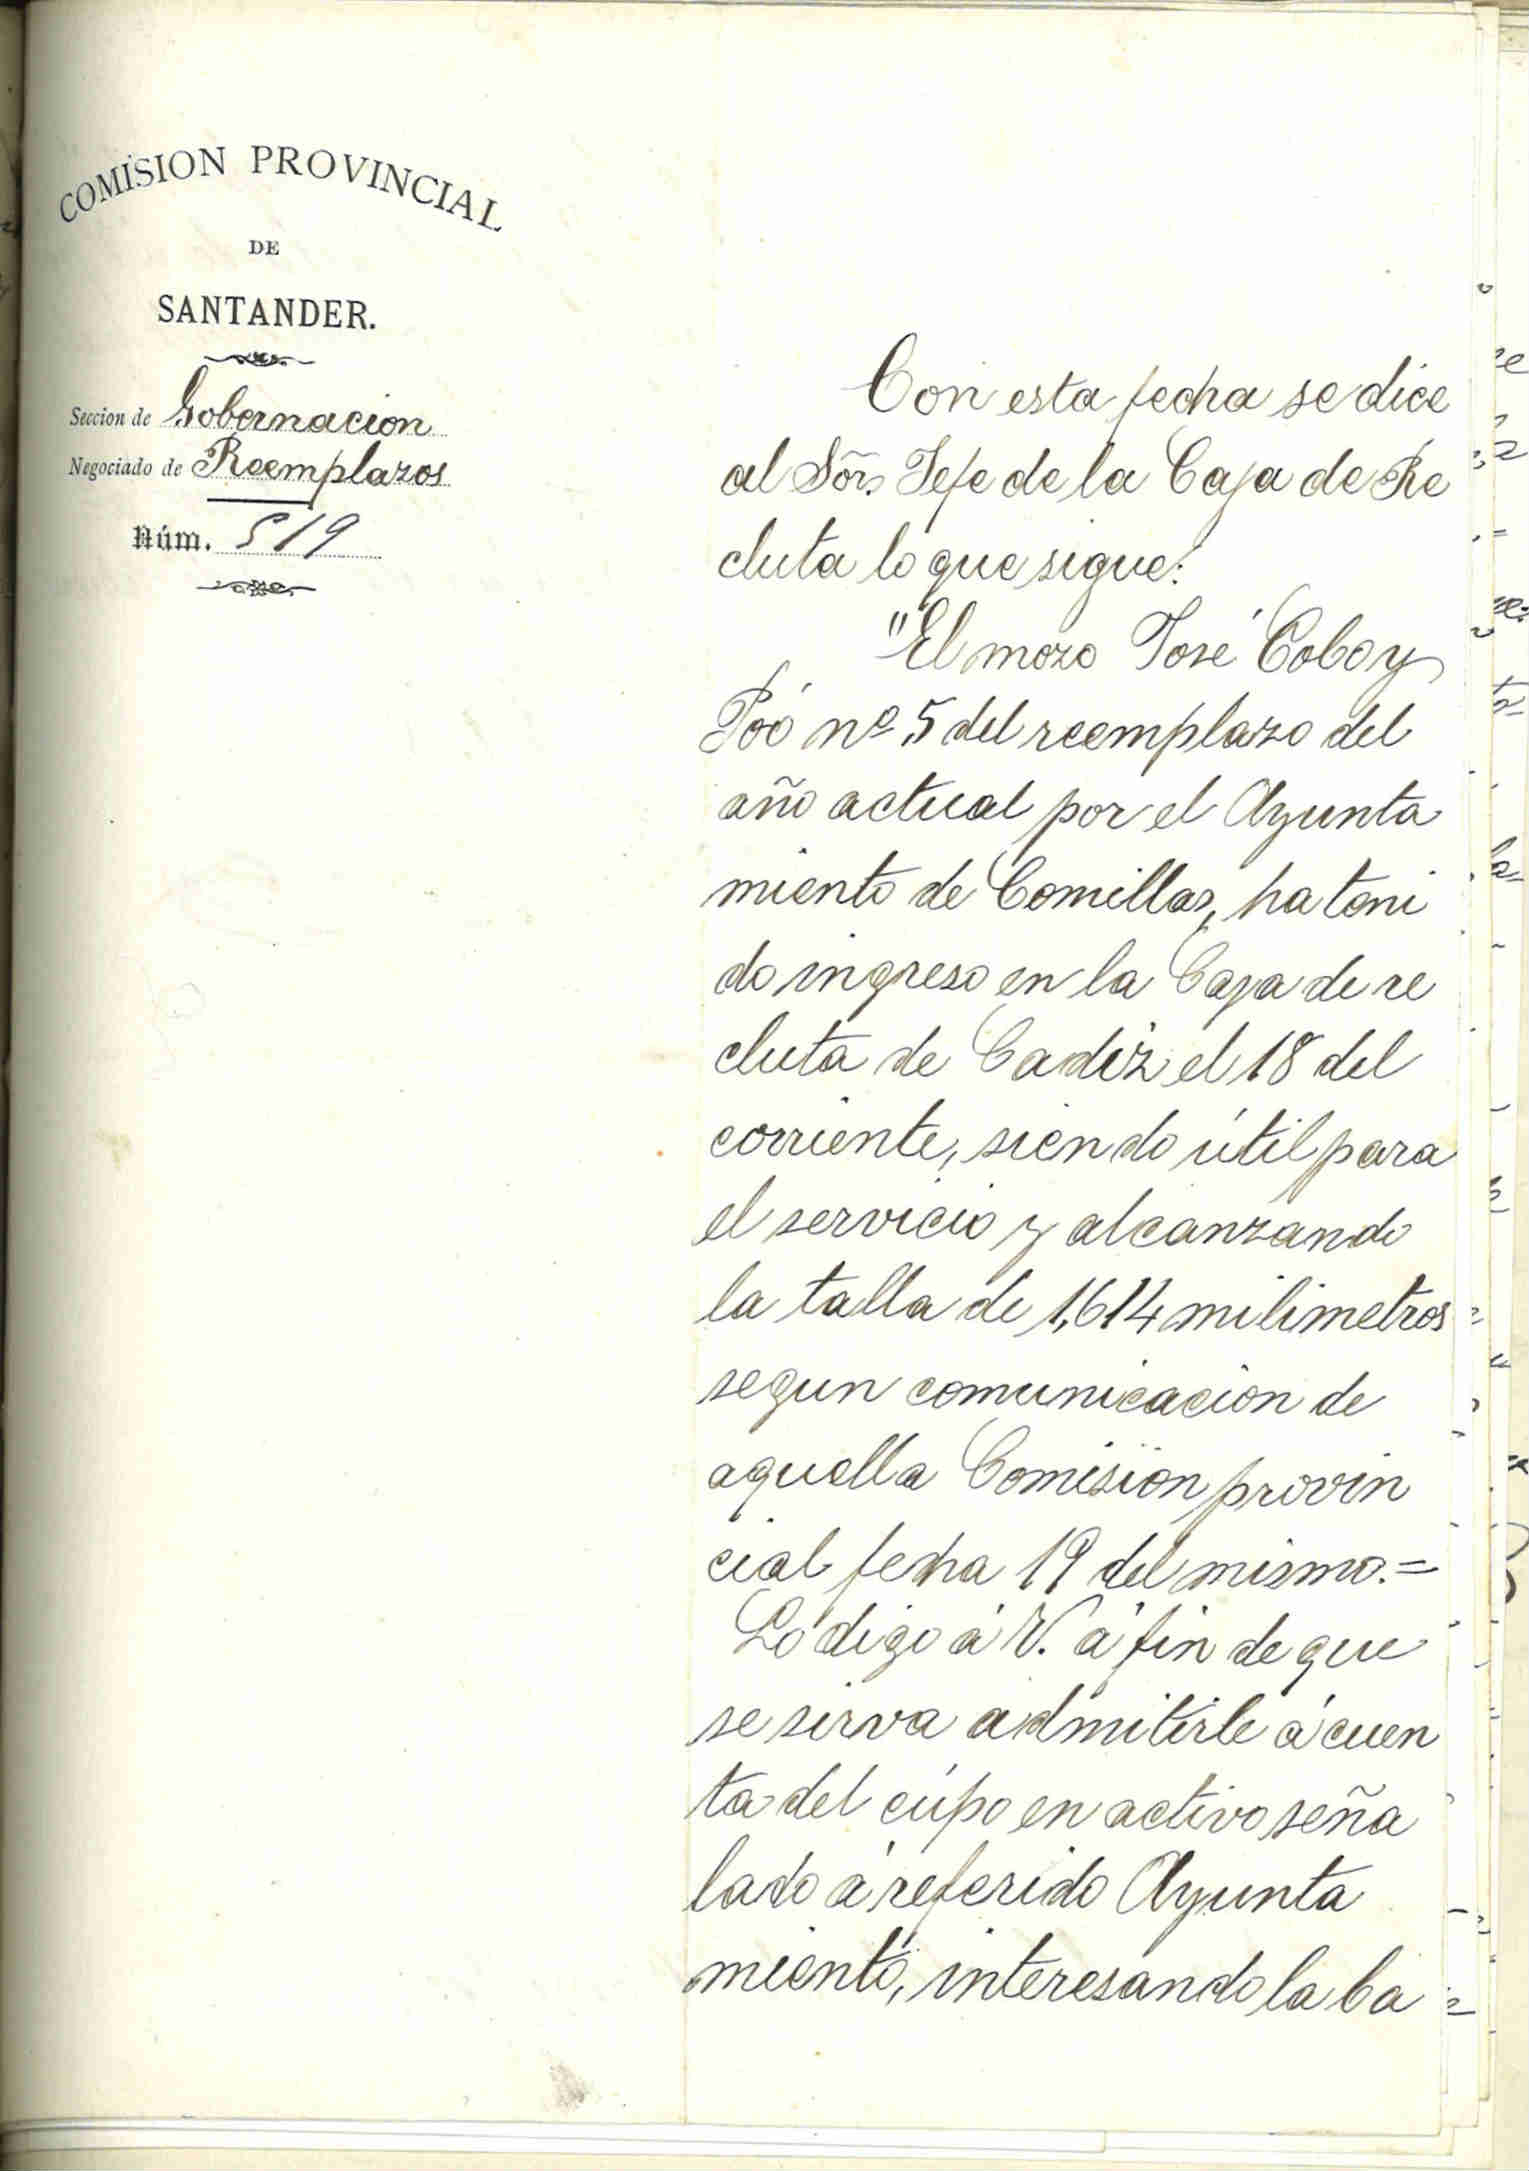 COMISION PROVINCIAL
DE
SANTANDER.
Seccion de Gobernacion
Negociado de Reemplazos
Núm. 519
Con esta fecha se dice
al Sõr. Jefe de la Caja de Re
cluta lo que sigue:
"El mozo José Cobo y
Póo nº 5 del reemplazo del
año actual por el Ayunta
miento de Comillas, ha teni
do ingreso en la Caja de re
cluta de Cadiz el 18 del
corriente, siendo útil para
el servicio y alcanzando
la talla de 1,614 milimetros
segun comunicacion de
aquella Comision provin
cial fecha 19 del mismo.=
Lo digo á V. á fin de que
se sirva admitirle á cuen
ta del cupo en activo seña
lado á referido Ayunta
miento, interesando la ba